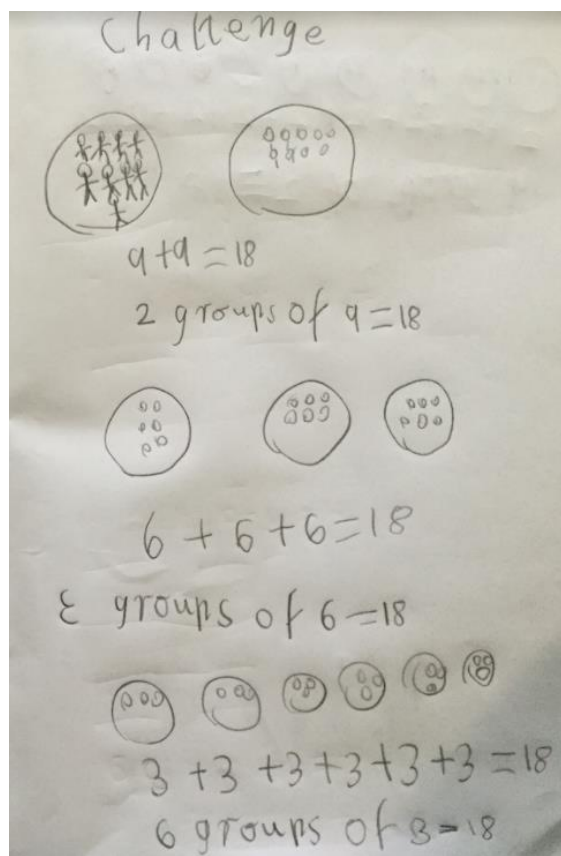 Challenge
9+9=18
2 groups of 9=18
6+6+6=18
3 groups of 6=18
3+3+3+3+3+3=18
6 groups of 3=18